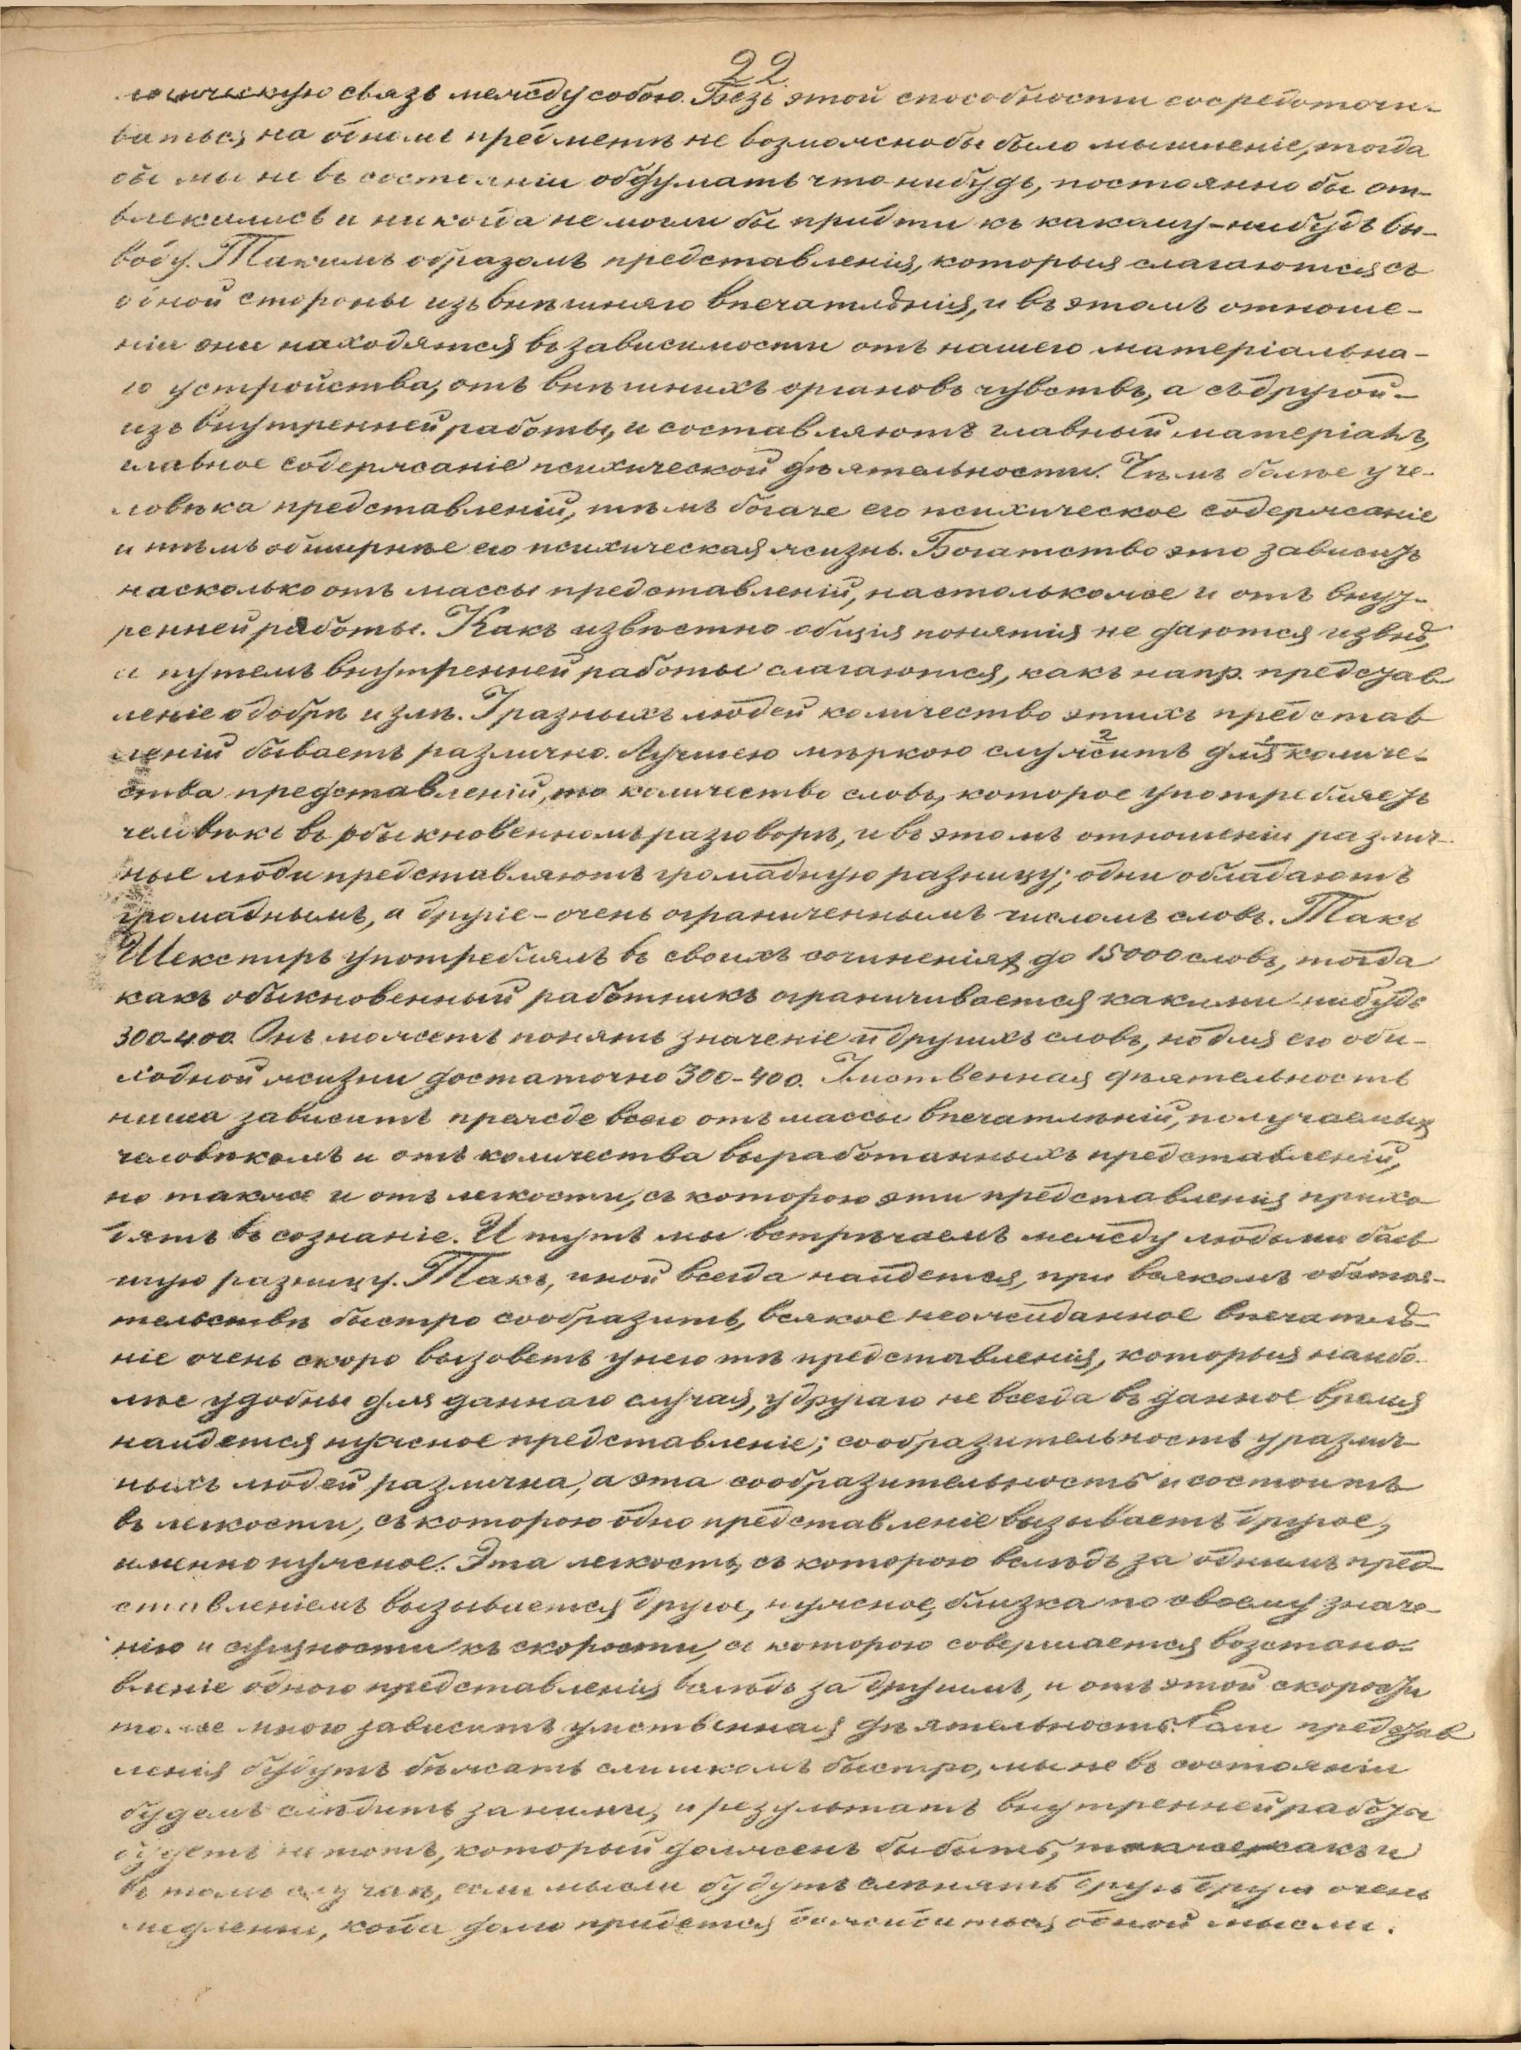 22
логическую связь между собою. Безъ этой способности сосредоточи-
ваться на одномъ предметѣ не возможно бы было мышленіе, тогда
бы мы не въ состояніи обдумать что нибудь, постоянно бы от-
влекались и никогда не могли бы придти къ какому-нибудь вы-
воду. Такимъ образомъ представленія, которыя слагаются съ
одной стороны изъ внѣшняго впечатлѣнія, и въ этомъ отноше-
ніи они находятся въ зависимости отъ нашего матеріальна-
го устройства, отъ внѣшнихъ органовъ чувствъ, а съ другой -
изъ внутренней работы, и составляютъ главный матеріалъ,
главное содержаніе психической дѣятельности. Чѣмъ болѣе у че-
ловѣка представленій, тѣмъ богаче его психическое содержаніе
и тѣмъ обширнѣе его психическая жизнь. Богатство это зависитъ
насколько отъ массы представленій, настолько же и отъ внут-
ренней работы. Какъ извѣстно общія понятія не даются извнѣ,
а путемъ внутренней работы слагаются, какъ напр. представ
леніе о добрѣ и злѣ. У разныхъ людей количество этихъ представ
леній бываетъ различно. Лучшею мѣркою служитъ для количе-
2 1
ства представленій, то количество словъ, которое употребляетъ
человѣкъ въ обыкновенномъ разговорѣ, и въ этомъ отношеніи различ-
ные люди представляютъ громадную разницу; одни обладаютъ
громаднымъ, а другіе - очень ограниченнымъ числомъ словъ. Такъ
Шекспиръ употреблялъ въ своихъ сочиненіях до 15000 словъ, тогда
какъ обыкновенный работникъ ограничивается какими нибудь
300-400. Онъ можетъ понять значеніе и другихъ словъ, но для его оби-
ходной жизни достаточно 300-400. Умственная дѣятельность
наша зависитъ прежде всего отъ массы впечатлѣній, получаемых
человѣкомъ и отъ количества выработанныхъ представленій,
но также и отъ легкости, съ которою эти представленія прихо
дятъ въ сознаніе. И тутъ мы встрѣчаемъ между людьми боль
шую разницу. Такъ, иной всегда найдется, при всякомъ обстоя-
тельствѣ быстро сообразить, всякое неожиданное впечатлѣ-
ніе очень скоро вызоветъ у него тѣ представленія, которыя наибо-
лѣе удобны для даннаго случая, у другаго не всегда въ данное время
найдется нужное представленіе; сообразительность у различ-
ныхъ людей различна, а эта сообразительность и состоитъ
въ легкости, съ которою одно представленіе вызываетъ другое,
именно нужное. Эта легкость, съ которою вслѣдъ за однимъ пред-
ставленіемъ вызывается другое, нужное, близка по своему значе-
нію и сущности къ скорости, съ которою совершается возстано-
вленіе одного представленія вслѣдъ за другимъ, и отъ этой скорости
тоже много зависитъ умственная дѣятельность. Если представ
ленія будутъ бѣжать слишкомъ быстро, мы не въ состояніи
будемъ слѣдить за ними, и результатъ внутренней работы
будетъ не тотъ, который долженъ бы быть, также, какъ и
въ томъ случаѣ, если мысли будутъ смѣнять другъ друга очень
медленно, когда долго придется дожидаться одной мысли.